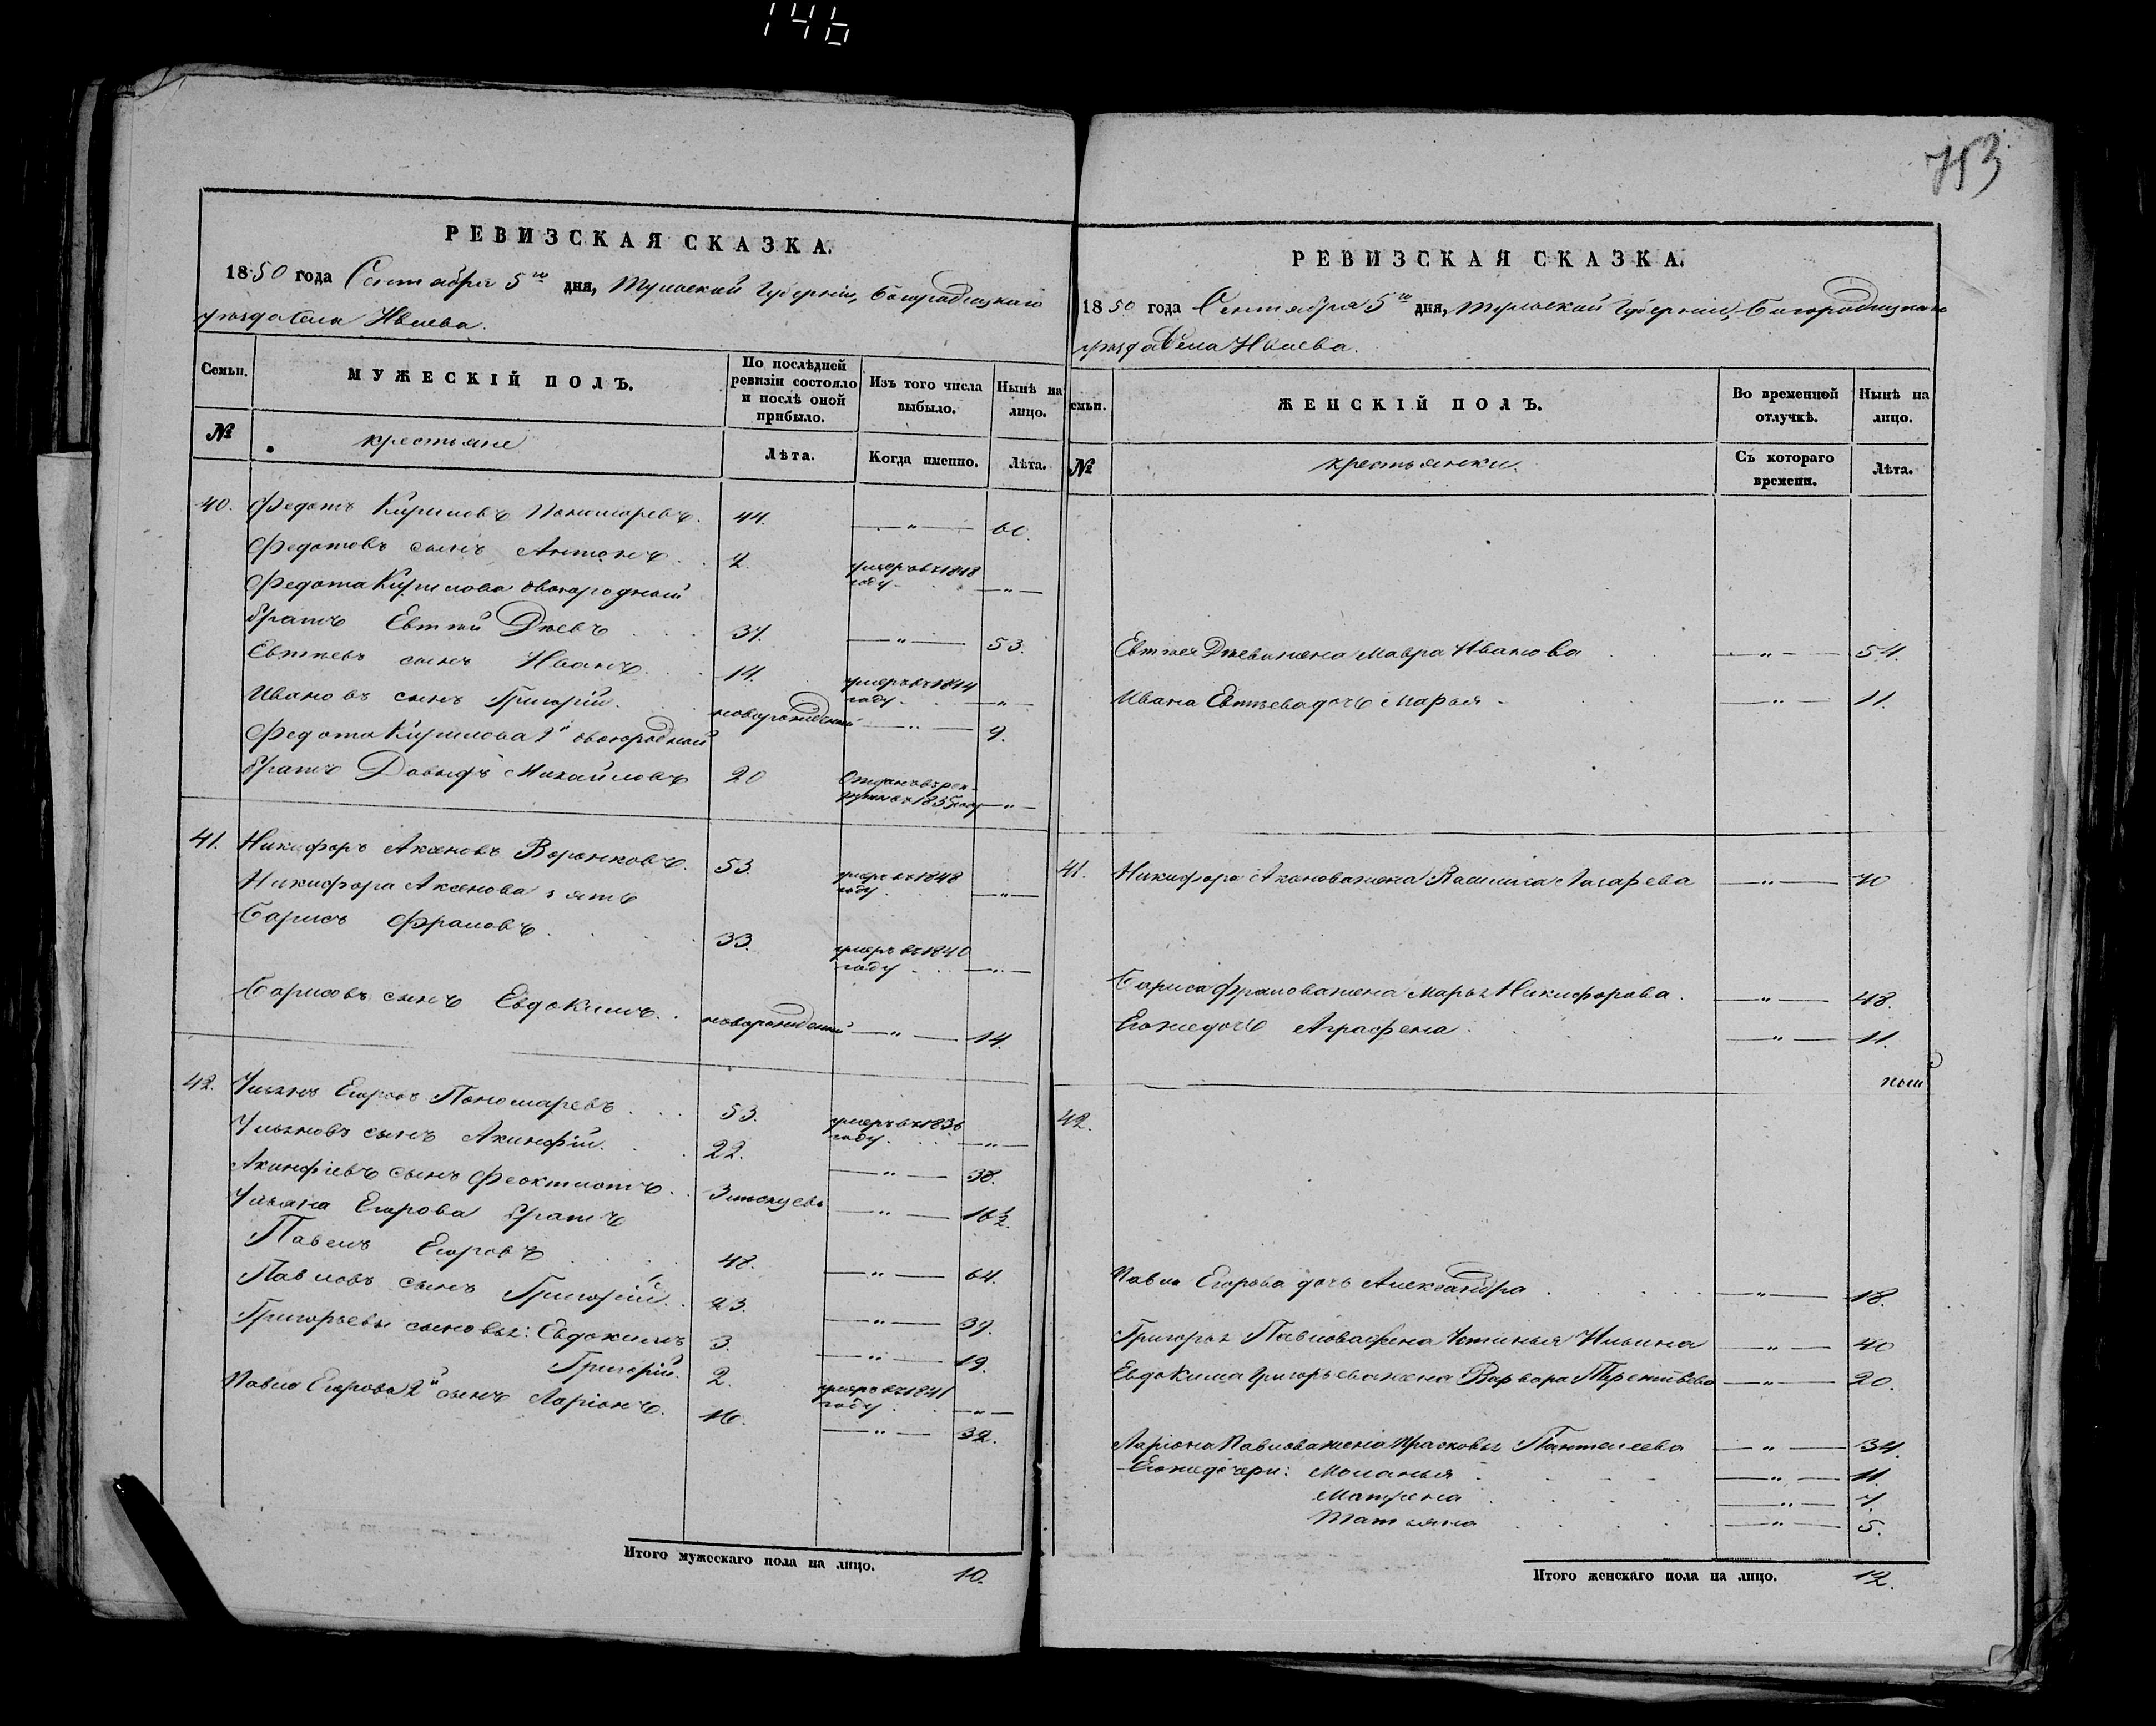 146
753
РЕВИЗСКАЯ СКАЗКА.
1850 года Сентября 5го дня, Тульской Губерніи, Богородицкаго
уѣзда Села
Семьи.
МУЖЕСКІЙ ПОЛЪ.
По послѣдней ревизіи состояло и послѣ оной прибыло.
Изъ того числа выбыло.
Нынѣ на лицо.
№
крестьяне
Лѣта.
Когда именно.
Лѣта.
40. Федотъ Кириловъ Пономаревъ. 44. —"— 60.
Федотовъ сынъ Антонъ 2. умеръ въ 1818 году —"—
Федота Кирилова двоюродный
братъ Евтѣй 37. —"— 53.
Евтѣевъ сынъ Иванъ. 14. умеръ въ 1844 году —"—
Ивановъ сынъ Григорій. новорожденный —"— 9.
Федота Кирилова 2й двоюродной
братъ Давыдъ Михайловъ 20 Отданъ въ рекруты въ 1835 году —"—
41. Никифоръ Аксеновъ Воронковъ. 53. умеръ въ 1848 году. —"—
Никифора Аксенова зять
Борисъ Фроловъ 33. умеръ въ 1840 году —"—
Борисовъ сынъ Евдокимъ. новорожденный —"— 14.
42. Ульянъ Егоровъ Пономаревъ 53. умеръ въ 1836 году. —"—
Ульяновъ сынъ Акинфій. 22. —"— 38.
Акинфіевъ сынъ Феоктистъ. —"— 16½.
Ульяна Егорова братъ
Павелъ Егоровъ 48. —"— 64.
Павловъ сынъ Григорій. 23. —"— 39.
Григорьевы сыновья: Евдокимъ 3. —"— 19.
Григорій. 2. умеръ въ 1841 году. —"—
Павла Егорова 2й сынъ Ларіонъ. 16. —"— 32.
Итого мужескаго пола на лицо. 10.
РЕВИЗСКАЯ СКАЗКА.
1850 года Сентября 5го дня, Тульской Губерніи, Богородицкаго
уѣзда Села
семьи.
ЖЕНСКІЙ ПОЛЪ.
Во временной отлучкѣ.
Нынѣ на лицо.
№
крестьянки.
Съ котораго времени.
Лѣта.
Евтѣя жена Мавра Иванова —"— 54.
Ивана Евтѣева дочь Марья —"— 11.
41. Никифора Аксенова жена Василиса Лазарева —"— 70
Бориса Фролова жена Марья Никифорова. —"— 48.
Его же дочь Аграфена —"— 11.
42.
Павла Егорова дочь Александра —"— 18.
Григорья Павлова жена Устинья Ильина —"— 40
Евдокима Григорьева жена Варвара Терентьева —"— 20.
Ларіона Павлова жена Прасковья Пантелеева —"— 34.
Его же дочери: Маланья —"— 11.
Матрена —"— 7.
Татьяна —"— 5.
Итого женскаго пола на лицо. 12.